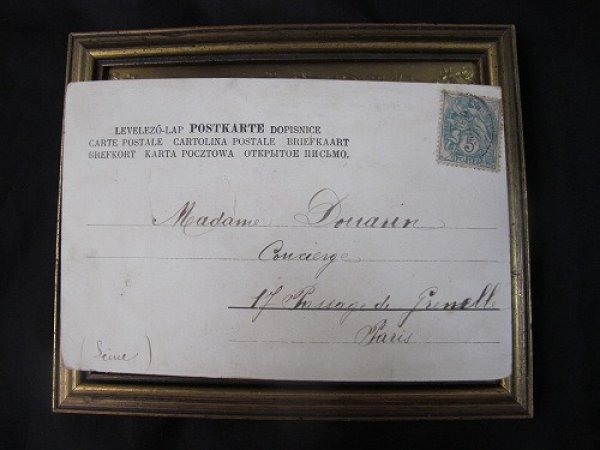 LEVELEZŐ-LAP POSTKARTE DOPISNICE
CARTE POSTALE CARTOLINA POSTALE BRIEFKAART
BREFKORT KARTA POCZTOWA ОТКРЫТОЕ ПИСЬМО.
5
Madame Douarin
Concierge
17 Passage de Grenelle
Paris
(Seine)